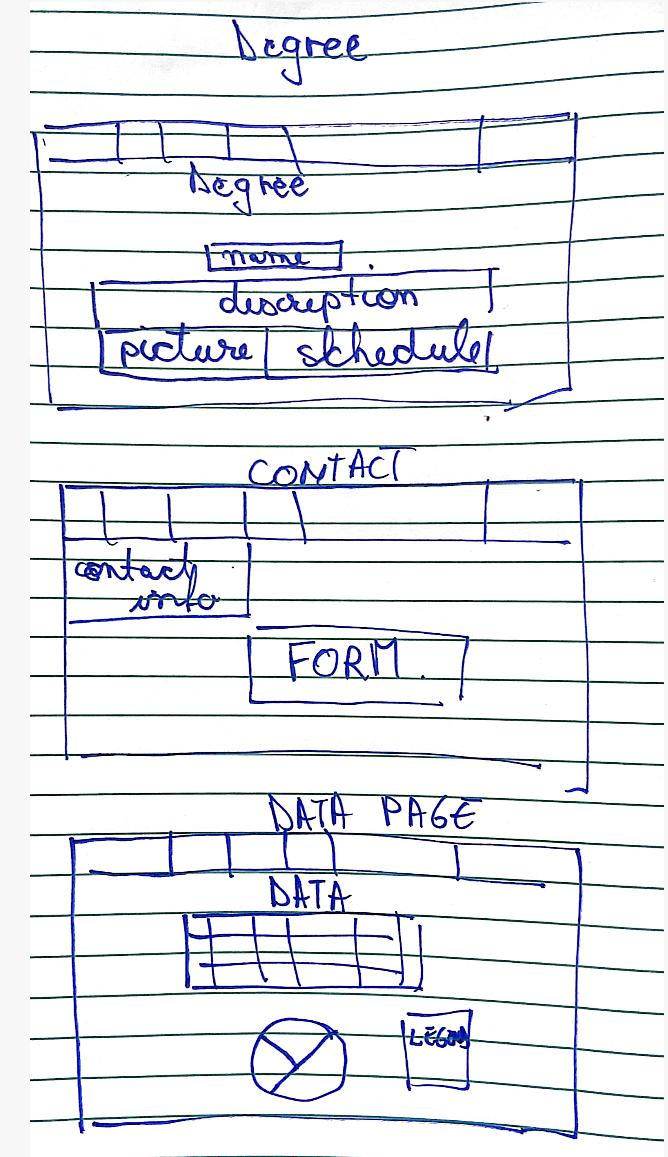 Degree
Degree
name
discription
picture schedule
CONTACT
contact
info
FORM.
DATA PAGE
DATA
LEGEND